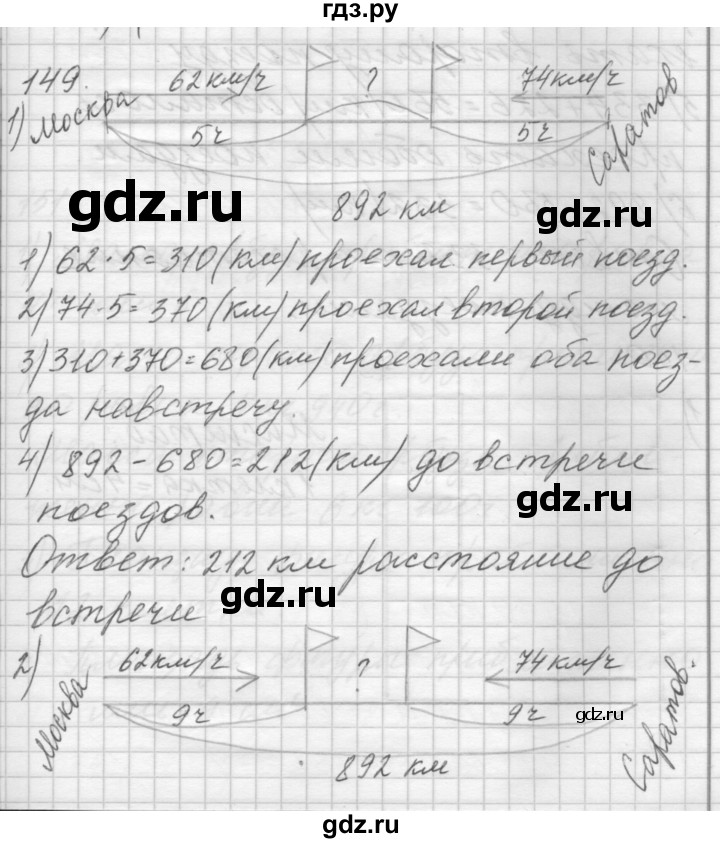 гдз.ру
149.
1) Москва 62км/ч ? 74км/ч Саратов
5ч 5ч
gdz.ru gdz.ru
892 км
1) 62·5=310(км) проехал первый поезд.
2) 74·5=370(км) проехал второй поезд.
3) 310+370=680(км) проехали оба поез-
да навстречу.
4) 892-680=212(км) до встречи
gdz.ru
поездов.
Ответ: 212 км расстояние до
gdz.ru
встречи
2) Москва 62км/ч ? 74км/ч Саратов.
9ч 9ч
gdz.ru
892 км
gdz.ru